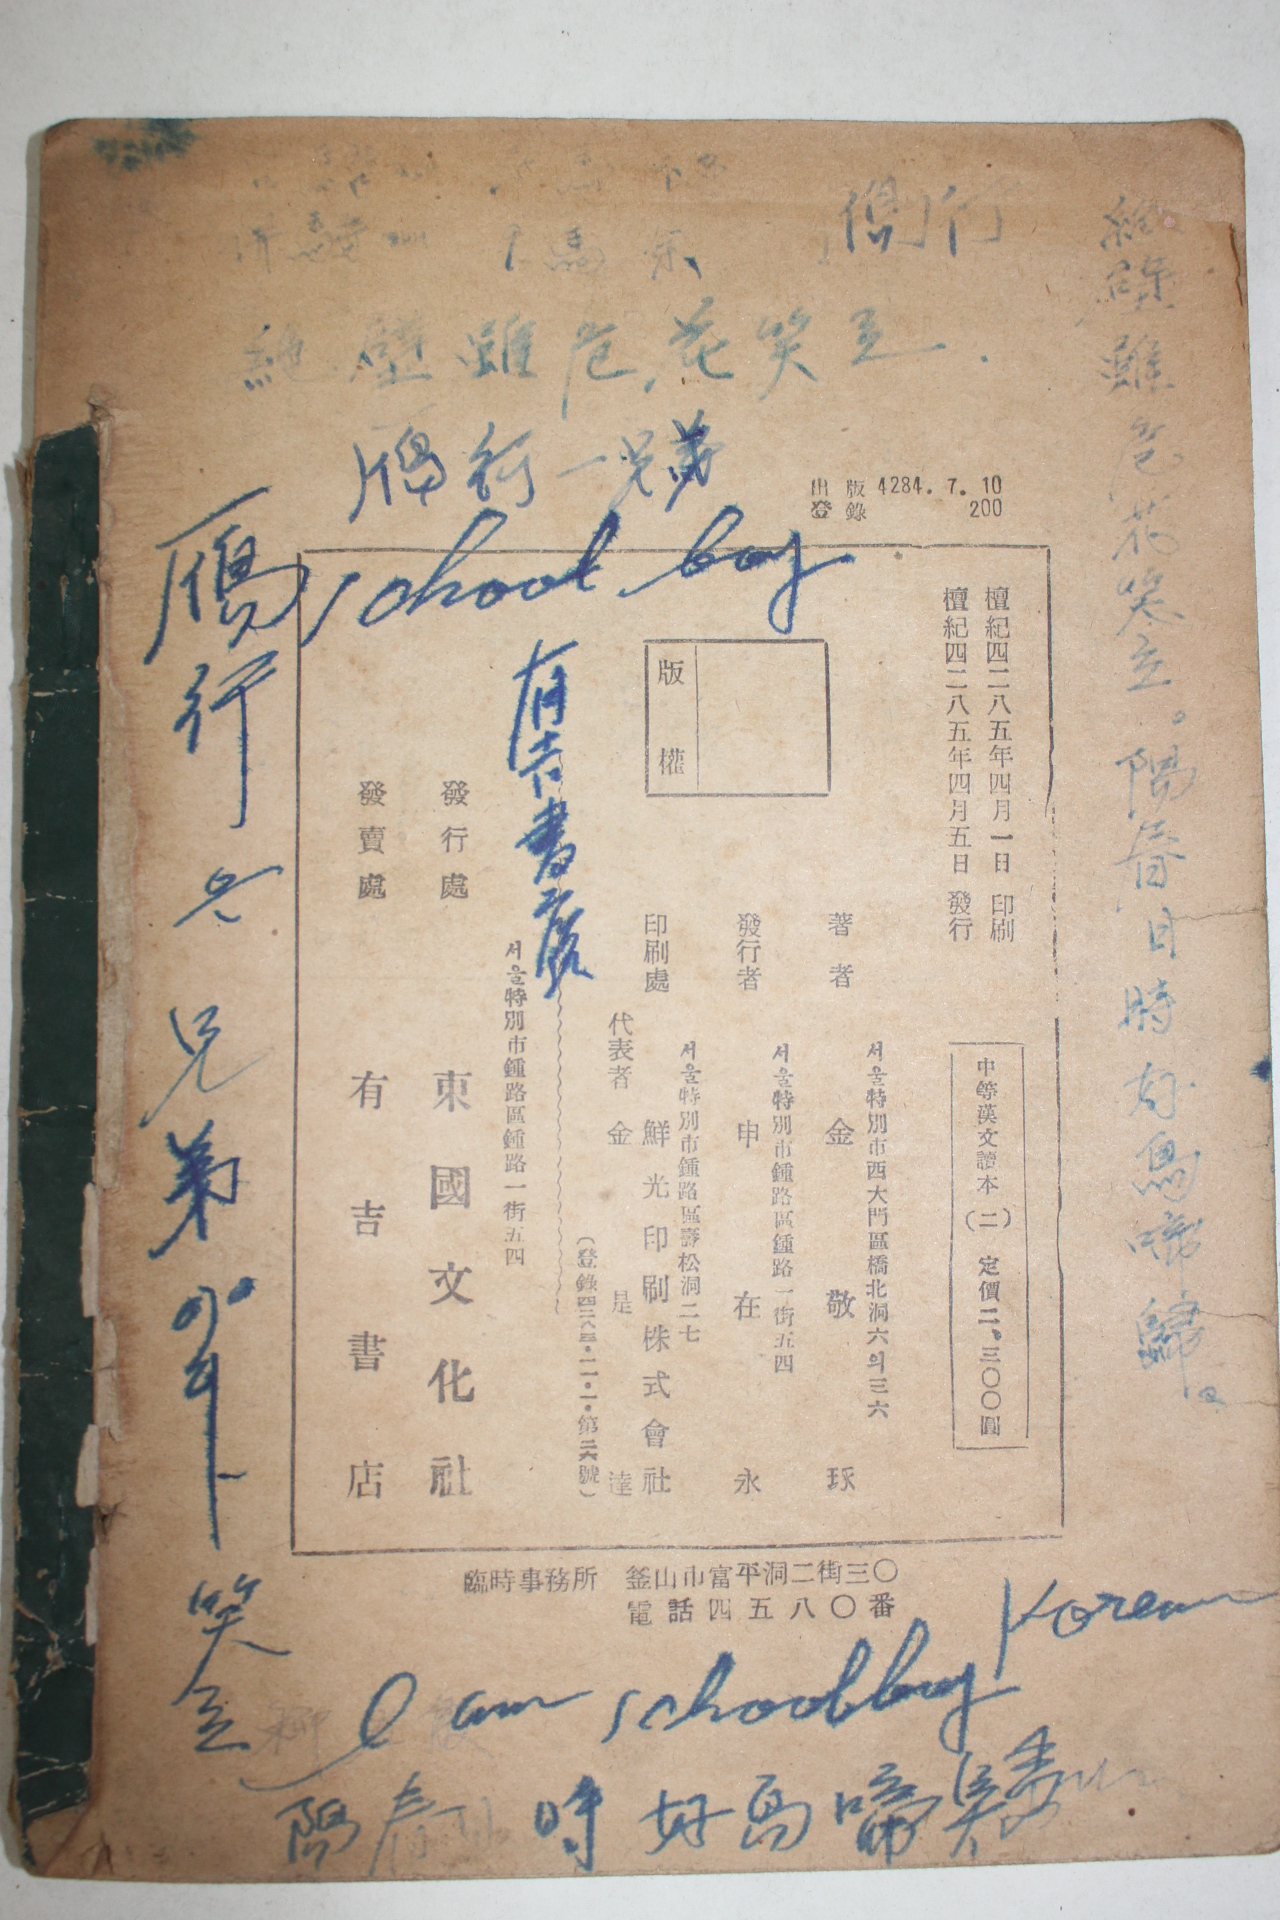 絶壁雖危花笑立.
鴈行一兄弟
出版 4284. 7. 10
登錄 200
school boy
檀紀四二八五年四月一日 印刷
檀紀四二八五年四月五日 發行
中等漢文讀本(二) 定價二、三〇〇圓
版權
著者
서울特別市西大門區橋北洞六의三六
金敬琢
發行者
서울特別市鍾路區鍾路一街五四
申在永
印刷處
서울特別市鍾路區壽松洞二七
鮮光印刷株式會社
代表者 金是達
(登錄四二八三・一一・一・第二六號)
서울特別市鍾路區鍾路一街五四
發行處 東國文化社
發賣處 有吉書店
有吉書店
臨時事務所 釜山市富平洞二街三〇
電話四五八〇番
絶壁雖危花笑立。陽春日時好鳥啼歸。
鴈行
兄弟
笑立
I am schoolboy Korean
陽春
時好鳥啼